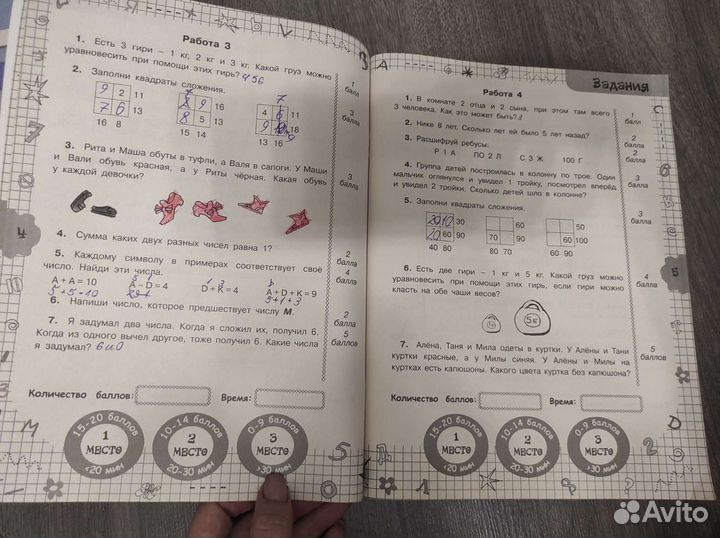 Работа 3
1. Есть 3 гири – 1 кг, 2 кг и 3 кг. Какой груз можно
уравновесить при помощи этих гирь? 4 5 6
1
балл
2. Заполни квадраты сложения.
3
балла
9 2 11
7 6 13
16 8
7
8 9 16
8 5 13
15 14
7
4 6 11
9 18
9
13 16
3. Рита и Маша обуты в туфли, а Валя в сапоги. У Маши
и Вали обувь красная, а у Риты чёрная. Какая обувь
у каждой девочки?
3
балла
4. Сумма каких двух разных чисел равна 1?
2
балла
5. Каждому символу в примерах соответствует своё
число. Найди эти числа.
4
балла
A + A = 10
A – D = 4
D + K = 4
A + D + K = 9
5 + 5 = 10
5 1
1 3
5 + 1 + 3
6. Напиши число, которое предшествует числу М.
2
балла
7. Я задумал два числа. Когда я сложил их, получил 6.
Когда из одного вычел другое, тоже получил 6. Какие числа
я задумал? 6 и 0
5
баллов
Количество баллов:
Время:
15-20 баллов
1
МЕСТО
<20 мин
10-14 баллов
2
МЕСТО
20-30 мин
0-9 баллов
3
МЕСТО
>30 мин
4
Задания
Работа 4
1. В комнате 2 отца и 2 сына, при этом там всего
3 человека. Как это может быть?
1
балл
2. Нике 8 лет. Сколько лет ей было 5 лет назад?
2
балла
3. Расшифруй ребусы:
2
балла
Р 1 А
ПО 2 Л
С 3 Ж
100 Г
4. Группа детей построилась в колонну по трое. Один
мальчик оглянулся и увидел 1 тройку, посмотрел вперёд
и увидел 2 тройки. Сколько детей шло в колонне?
3
балла
5. Заполни квадраты сложения.
3
балла
20 10 30
20 60 90
40 80
60
70 90
80 70
50
60 100
60 90
6. Есть две гири – 1 кг и 5 кг. Какой груз можно
уравновесить при помощи этих гирь, если гири можно
класть на обе чаши весов?
4
балла
7. Алёна, Таня и Мила одеты в куртки. У Алёны и Тани
куртки красные, а у Милы синяя. У Алёны и Милы на
куртках есть капюшоны. Какого цвета куртка без капюшона?
5
баллов
Количество баллов:
Время:
15-20 баллов
1
МЕСТО
<20 мин
10-14 баллов
2
МЕСТО
20-30 мин
0-9 баллов
3
МЕСТО
>30 мин
5
Avito